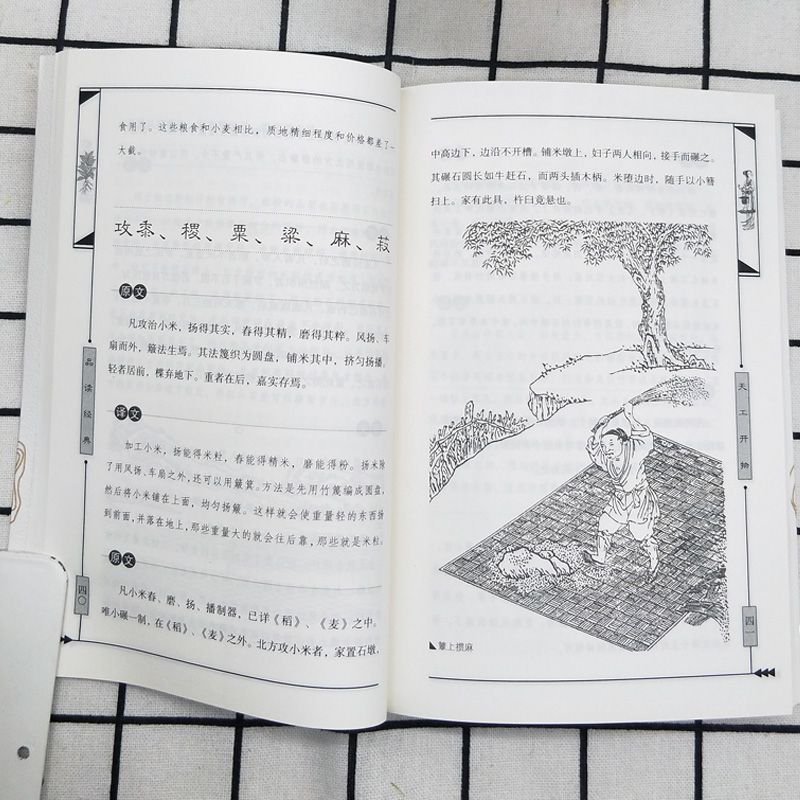 食用了。这些粮食和小麦相比，质地精细程度和价格都差了一
大截。
攻黍、稷、粟、粱、麻、菽
原文
凡攻治小米，扬得其实，舂得其精，磨得其粹。风扬、车
扇而外，簸法生焉。其法篾织为圆盘，铺米其中，挤匀扬播。
轻者居前，楪弃地下。重者在后，嘉实存焉。
译文
加工小米，扬能得米粒，舂能得精米，磨能得粉。扬米除
了用风扬、车扇之外，还可以用簸箕。方法是先用竹篾编成圆盘，
然后将小米铺在上面，均匀扬簸。这样就会使重量轻的东西扬
到前面，并落在地上，那些重量大的就会往后靠，那些就是米粒。
原文
凡小米舂、磨、扬、播制器，已详《稻》、《麦》之中。
唯小碾一制，在《稻》、《麦》之外。北方攻小米者，家置石墩，
品读经典
四〇
中高边下，边沿不开槽。铺米墩上，妇子两人相向，接手而碾之。
其碾石圆长如牛赶石，而两头插木柄。米堕边时，随手以小彗
扫上。家有此具，杵臼竟悬也。
天工开物
四一
上掼麻